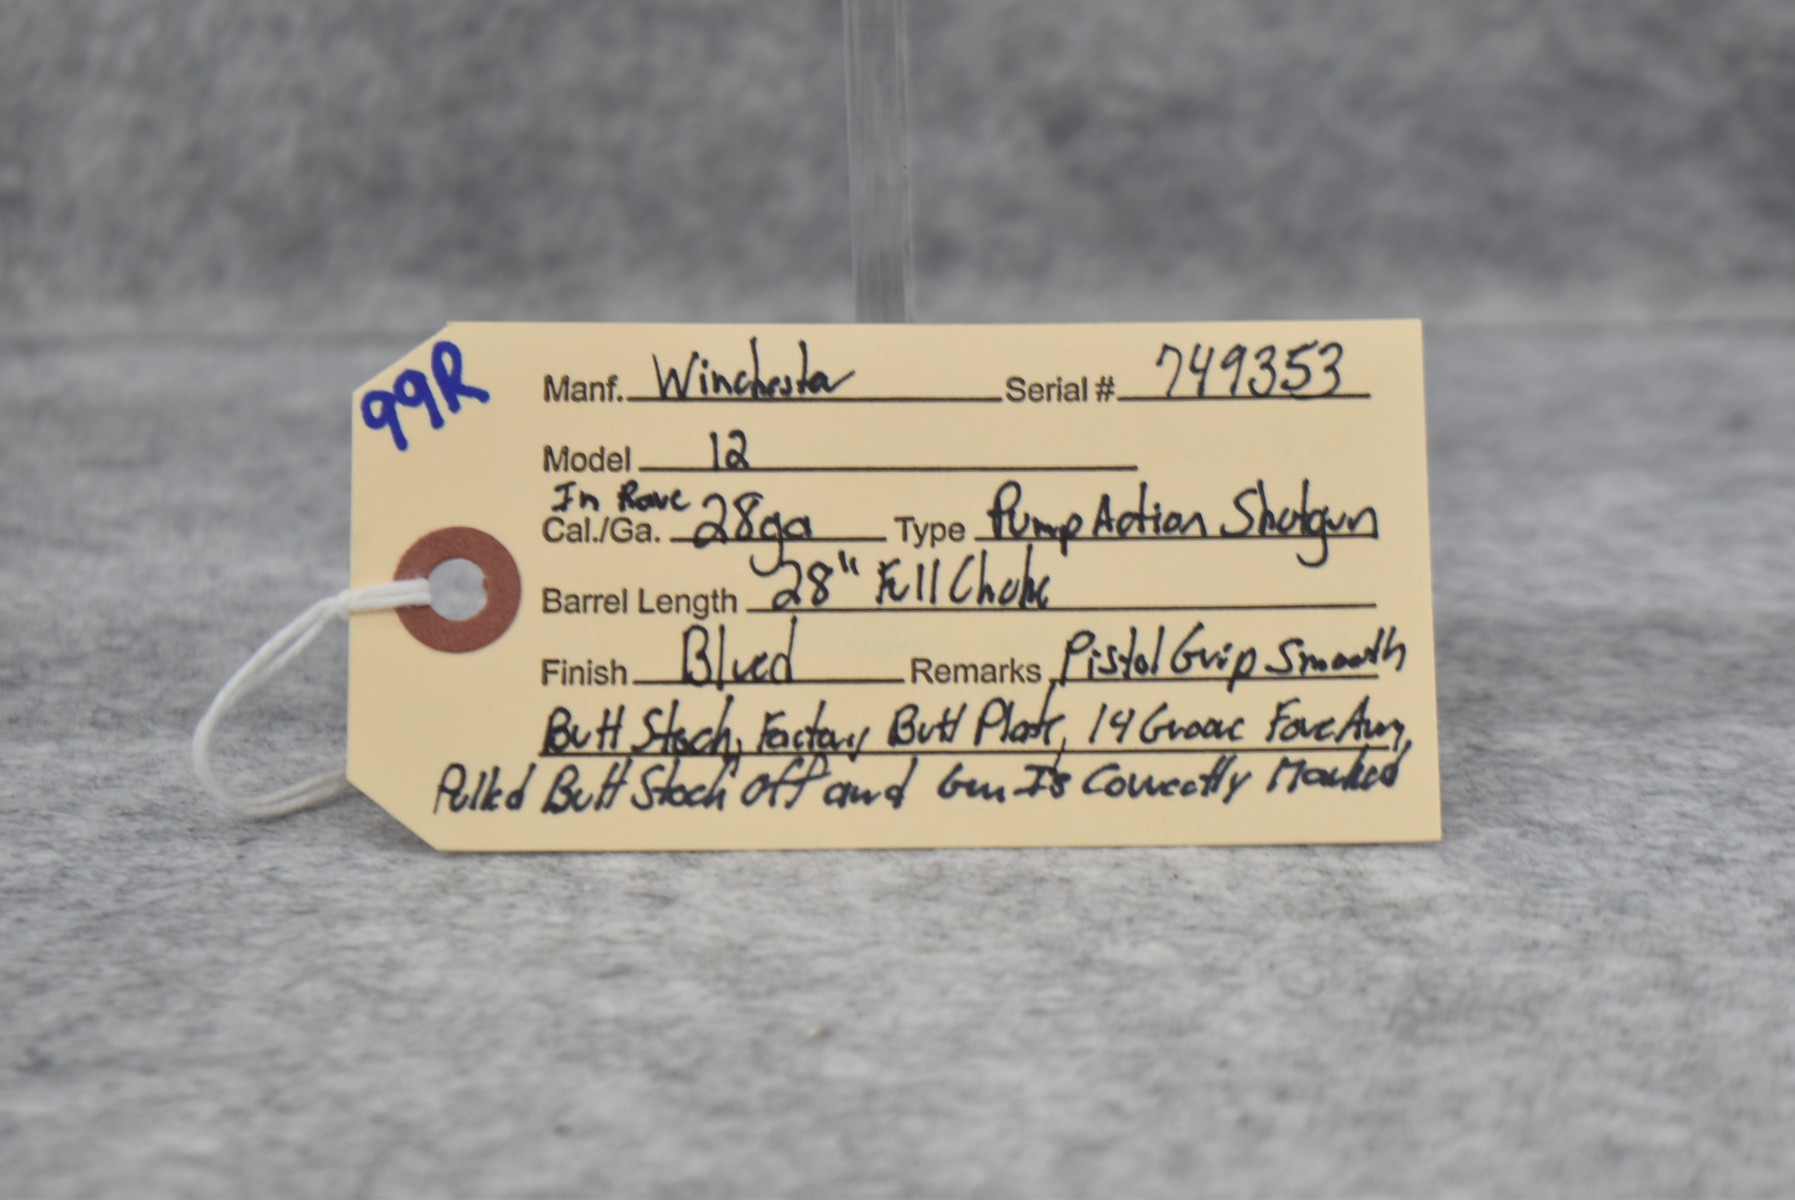 99R
Manf. Winchester Serial # 749353
Model 12
In Rare
Cal./Ga. 28ga Type Pump Action Shotgun
Barrel Length 28" Full Choke
Finish Blued Remarks Pistol Grip Smooth
Butt Stock, Factory Butt Plate, 14 Groove Fore Arm,
Pulled Butt Stock off and Gun Is Correctly Marked